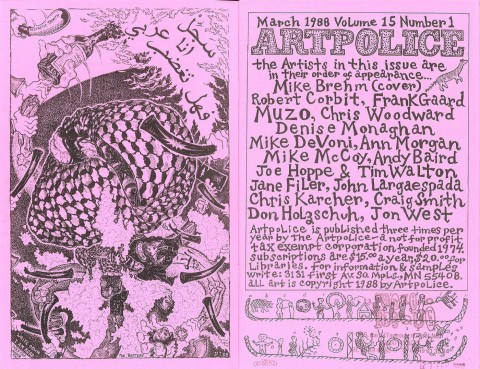 سجل
أنا عربي
فهل تغضب
March 1988 Volume 15 Number 1
ARTPOLICE
the Artists in this issue are
in their order of appearance...
Mike Brehm (cover)
Robert Corbit, Frank Gaard
Muzo, Chris Woodward
Denise Monaghan
Mike DeVoni, Ann Morgan
Mike McCoy, Andy Baird
Joe Hoppe & Tim Walton
Jane Filer, John Largaespada
Chris Karcher, Craig Smith
Don Holzschuh, Jon West
Artpolice is published three times per
year by the Artpolice-a not for profit
tax exempt corporation founded 1974.
subscriptions are $15.00 a year, $20.00 for
libraries. for information & samples
write: 3131 first Av. So. Mpls., MN 55408.
all art is copyright 1988 by Artpolice.